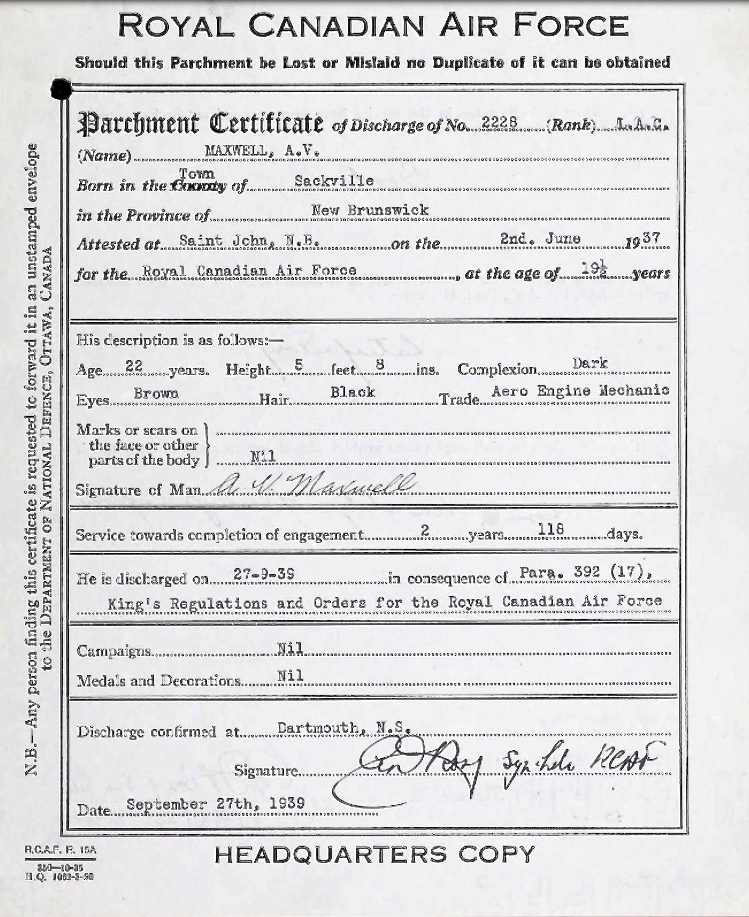 ROYAL CANADIAN AIR FORCE
Should this Parchment be Lost or Mislaid no Duplicate of it can be obtained
Parchment Certificate of Discharge of No. 2228 (Rank) L.A.C.
(Name) MAXWELL, A.V.
Town
Born in the County of Sackville
in the Province of New Brunswick
Attested at Saint John, N.B. on the 2nd. June 1937
for the Royal Canadian Air Force, at the age of 19½ years
His description is as follows:—
Age 22 years. Height 5 feet 8 ins. Complexion Dark
Eyes Brown Hair Black Trade Aero Engine Mechanic
Marks or scars on
the face or other
parts of the body } Nil
Signature of Man A. V. Maxwell
Service towards completion of engagement 2 years 118 days.
He is discharged on 27-9-39 in consequence of Para. 392 (17),
King's Regulations and Orders for the Royal Canadian Air Force
Campaigns Nil
Medals and Decorations Nil
Discharge confirmed at Dartmouth, N.S.
Signature RCAF
Date September 27th, 1939
R.C.A.F. R. 15A
H.Q. 1062-3-50
HEADQUARTERS COPY
N.B.—Any person finding this certificate is requested to forward it in an unstamped envelope
to the DEPARTMENT OF NATIONAL DEFENCE, OTTAWA, CANADA